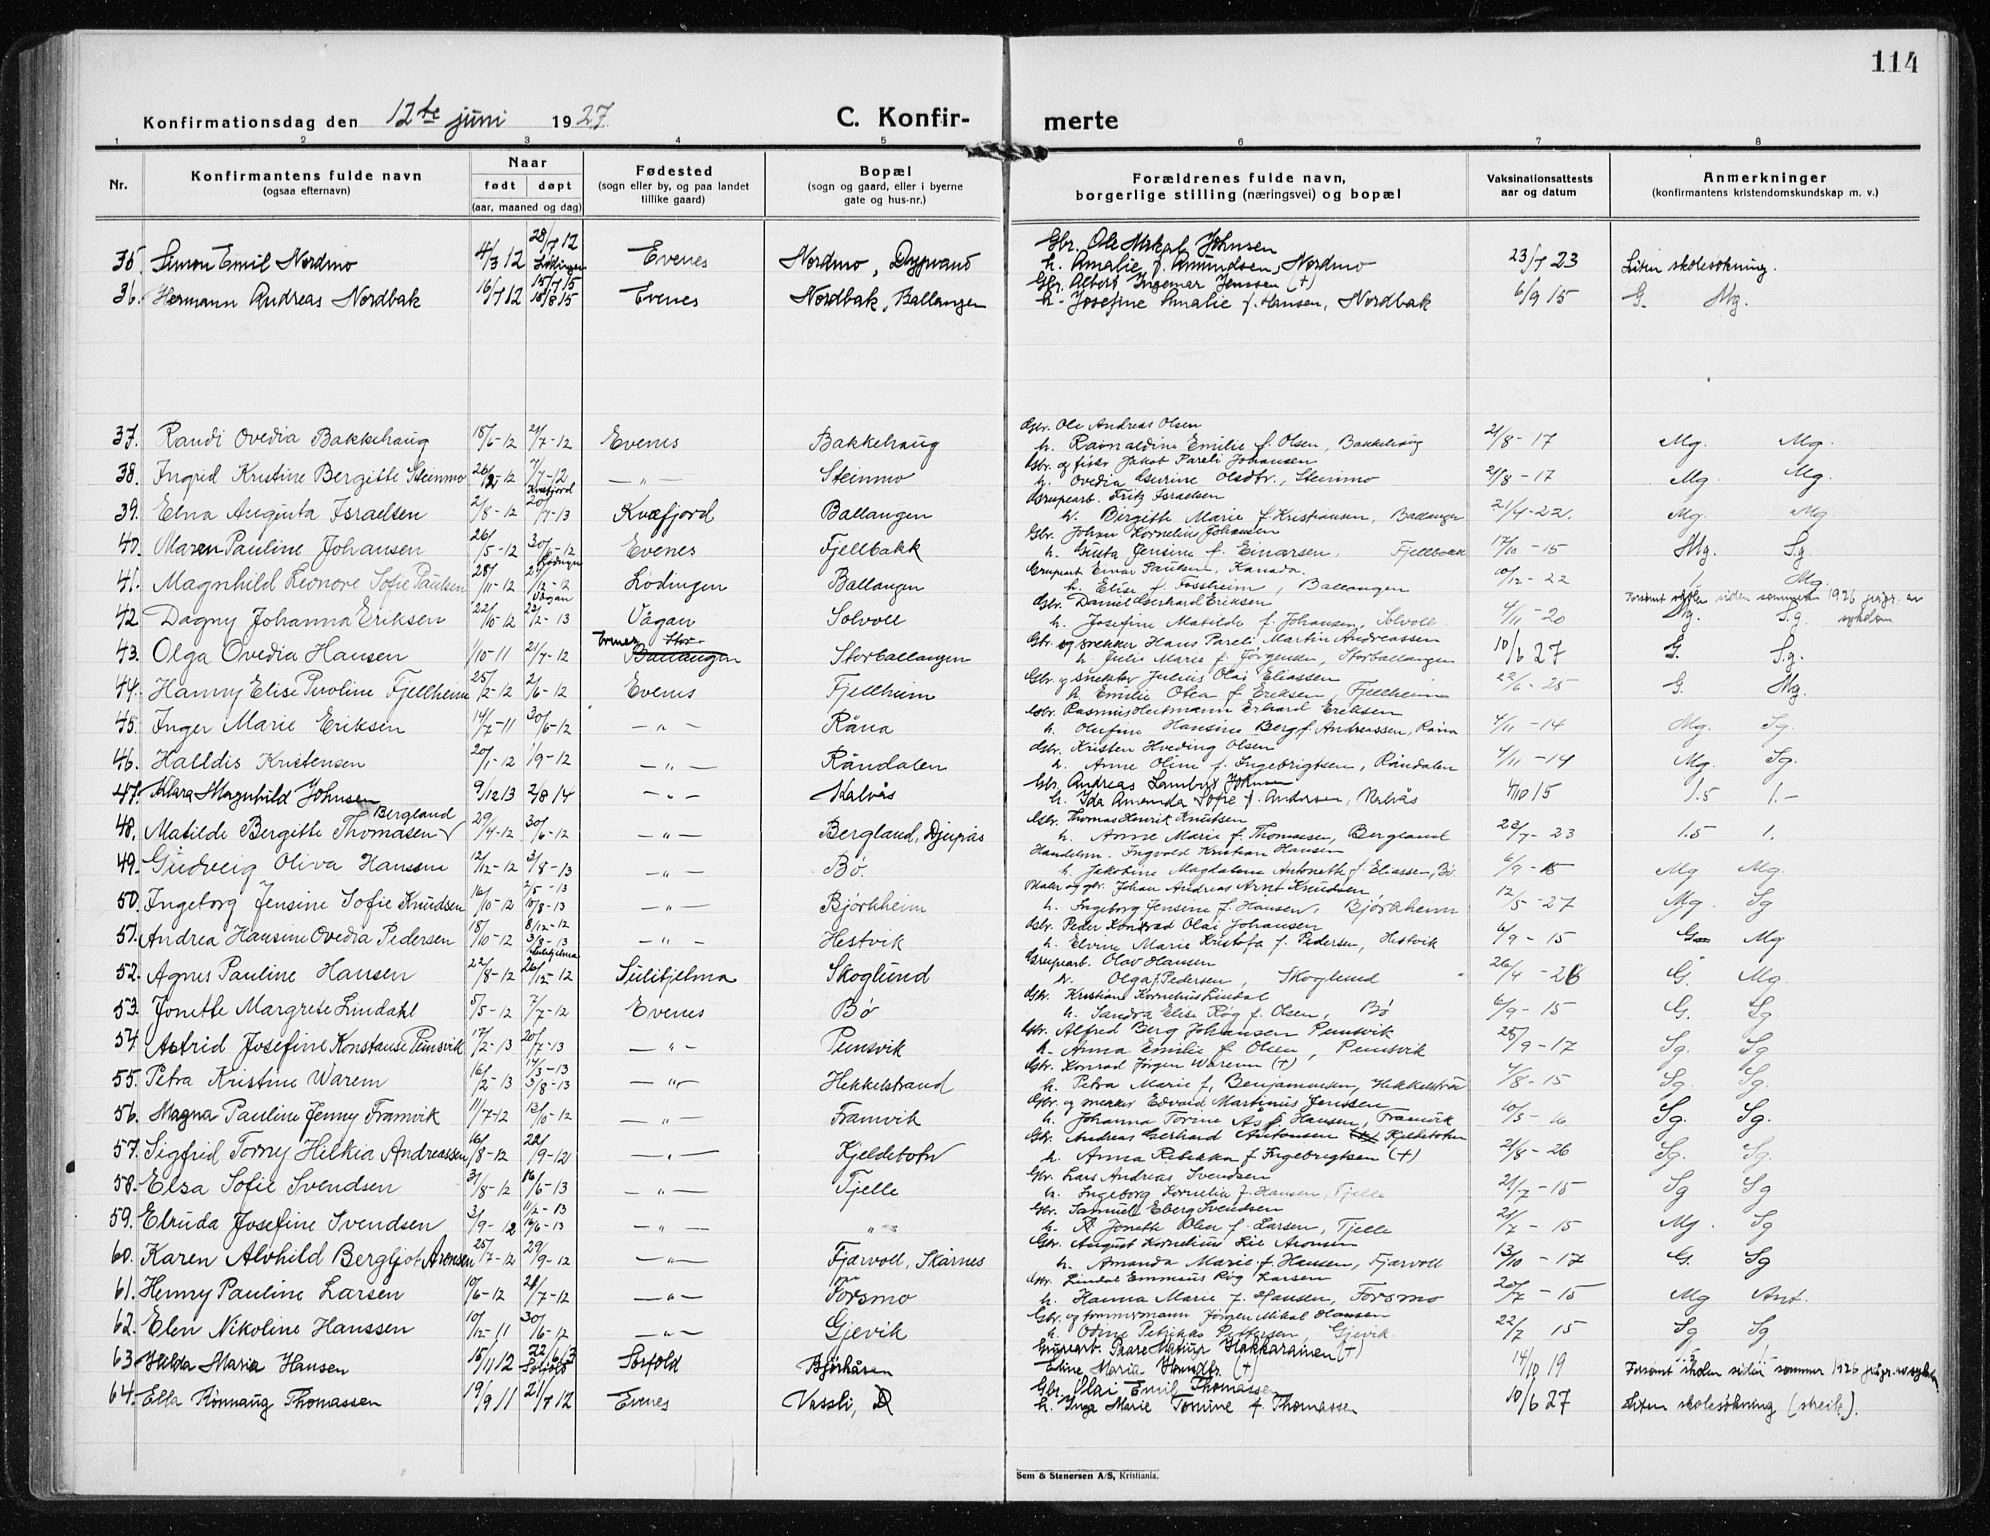 114
Konfirmationsdag den 12te juni 1927
C. Konfirmerte
1 2 3 4 5 6 7 8
Nr. Konfirmantens fulde navn (ogsaa efternavn) Naar født døpt (aar, maaned og dag) Fødested (sogn eller by, og paa landet tillike gaard) Bopæl (sogn og gaard, eller i byerne gate og hus-nr.) Forældrenes fulde navn, borgerlige stilling (næringsvei) og bopæl Vaksinationsattests aar og datum Anmerkninger (konfirmantens kristendomskundskap m. v.)
35. Simon Emil Nordmo 4/3 12 28/7 12 Lødingen Evenes Nordmo, Gbr. Ole Mikal Johnsen
h. Amalie f. Amundsen, Nordmo 23/7 23 Liten skolesøkning.
36. Hermann Andreas Nordbak 16/7 12 15/7 15 18/8 15 Evenes Nordbak, Ballangen Gbr. Albert Ingemar Jenssen (+)
h. Josefine Amalie f. Hansen, Nordbak 6/9 15 G. Mg.
37. Randi Ovedia Bakkehaug 18/6-12 21/7-12 Evenes Bakkehaug Gbr. Ole Andreas Olsen
h. Ravnaldine Emilie f. Olsen, Bakkehaug 21/8-17 Mg. Mg.
38. Ingrid Kristine Bergitte Steinmo 26/2-12 7/7-12 —"— Steinmo Gbr. og fisker Jakob Pareli Johansen
h. Ovedia Olsdtr., Steinmo 21/8-17 Mg. Mg.
39. Elna Augusta Israelsen 2/8-12 Kvæfjord 20/7-13 Kvæfjord Ballangen Grupearb. Fritz Israelsen
h. Birgitte Marie f. Kristiansen, Ballangen 21/4-22 Mg. Mg
40. Maren Pauline Johansen 26/5-12 30/6-12 Evenes Fjellbakk Gbr. Johan Kornelius Johansen
h. Gusta Jensine f. Einarsen, Fjellbakk 17/10-15 Mg. Sg.
41. Magnhild Leonore Sofie Paulsen 28/11-12 Lødingen Lødingen Ballangen Grupearb. Einar Paulsen, Kanada.
h. Elise f. Fossheim, Ballangen 10/12-22 Mg.
42. Dagny Johanna Eriksen 22/10-12 Vågan 23/2-13 Vågan Solvoll Gbr. Daniel Gerhard Eriksen
h. Josefine Matilde f. Johansen, Solvoll 4/11-20 Forsømt skolen siden sommeren 1926 pågr. av sykdom Mg. Sg.
43. Olga Ovedia Hansen /10-11 21/7-12 Evenes Stor- Ballangen Storballangen Gbr. og snekker Hans Pareli Martin Andreassen
h. Julie Marie f. Jørgensen, Storballangen 10/6 27 G. Sg.
44. Hanny Elise Peroline Fjellheim 25/2-12 2/6-12 Evenes Fjellheim Gbr. og snekker Julius Olai Eliassen
h. Emilie Olea f. Eriksen, Fjellheim 22/6-25 G. Mg.
45. Inger Marie Eriksen 14/7-11 30/6-12 —"— Råna Gbr. Rasmus Hermann Erhard Eriksen
h. Olufine Hansine Berg f. Andreassen, Råna 4/11-14 Mg. Sg.
46. Halldis Kristensen 20/1-12 1/9-12 —"— Råndalen Gbr. Kristen Hveding Olsen
h. Anne Oline f. Ingebrigtsen, Råndalen 4/11-14 Mg. Sg.
47. Klara Magnhild Johnsen 9/12 13 2/8 14 —"— Kalvås Gbr. Andreas Lambert Johnsen
h. Ida Amanda Sofie f. Andersen, Kalvås 4/10 15 1.5 1.—
48. Matilde Bergitte Thomasen Bergland 29/4-12 30/6-12 —"— Bergland, Djupås Gbr. Thomas Henrik Knutsen
h. Anne Marie f. Thomasen, Bergland 23/7-23 1.5 1.
49. Gudveig Oliva Hansen 12/12-12 3/8-13 —"— Bø. Handelsm. Ingvald Kristian Hansen
h. Jakobine Magdalene Antonette f. Eliassen, Bø. 6/9-15 Mg Mg.
50. Ingeborg Jensine Sofie Knudsen 16/10-12 2/5-13 10/8-13 —"— Bjørkheim Maler og gbr. Johan Andreas Arnt Knudsen,
h. Ingeborg Jensine f. Hansen, Bjørkheim 12/5-27 Mg. Sg
51. Andrea Hansine Ovedia Pedersen 18/10-12 8/12-12 3/8-13 —"— Hestvik Gbr. Peder Konrad Olai Johansen
h. Elvine Marie Kristofa f. Pedersen, Hestvik 6/9-15 G Mg
52. Agnes Pauline Hansen 22/8-12 Sulitjelma 26/12-12 Sulitjelma Skoglund Grupearb. Olav Hansen
h. Olga f. Pedersen, Skoglund 26/4-26 G. Mg.
53. Jonette Margrete Lindahl 5/5-12 7/7-12 Evenes Bø Gbr. Kristian Kornelius Lindal
h. Sandra Elise Røg f. Olsen, Bø 6/9-15 G. Sg.
54 Astrid Josefine Konstanse Pemsvik 17/2-13 20/7-13 —"— Pemsvik Gbr. Alfred Berg Johansen Pemsvik
h. Anna Emilie f. Olsen, Pemsvik 25/9-17 Sg. Sg.
55. Petra Kristine Warem 16/2-13 14/3-13 3/8-13 —"— Hekkelstrand Gbr. Konrad Jørgen Warem (+)
h. Petra Marie f. Benjaminsen, Hekkelstra 4/8-15 Sg. Sg.
56. Magna Pauline Jenny Framvik 11/7-12 13/10-12 —"— Framvik Gbr. og snekker Edvard Martinus Jenssen
h. Johanna Torine Ås f. Hansen, Framvik 10/5-16 Sg. Sg.
57. Sigfrid Torny Hilkia Andreassen 16/8-12 22/9-12 —"— Kjeldebotn Gbr. Andreas Gerhard Antonsen Kjeldebotn
h. Anna Rebekka f. Ingebrigtsen (+) 21/8-26 Sg. Sg.
58. Elsa Sofie Svendsen 31/8-12 16/6-13 —"— Tjelle Gbr. Lars Andreas Svendsen
h. Ingeborg Kornelia f. Hansen, Tjelle 21/7-15 Sg Sg
59. Elruda Josefine Svendsen 3/9-12 11/2-13 16/6-13 —"— " Gbr. Samuel Eberg Svendsen
h. Jonette Olea f. Larsen, Tjelle 21/7-15 Mg. Sg
60. Karen Alvhild Bergljot Aronsen 25/7-12 29/9-12 —"— Fjærvoll, Skarnes Gbr. August Kornelius Lie Aronsen
h. Amanda Marie f. Hansen, Fjærvoll 13/10-17 G. Sg
61. Henny Pauline Larsen 10/6-12 21/7-12 —"— Forsmo Gbr. Lindal Emmaus Røg Larsen
h. Hanna Marie f. Hansen, Forsmo 20/7-15 Mg Ant.
62. Elen Nikoline Hanssen 10/12-11 30/6-12 —"— Gjevik Gbr. og tømmermann Jørgen Mikal Hansen
h. Odine Petrikke Pettersen, Gjevik. 22/7 15 Sg Sg
63 Hilda Maria Hansen 15/11 12 22/6 13 Sørfold Sørfold Bjørkåsen Gruvearb. Hakkarainen (+)
Eline Maria Hansdtr. (+) 14/10 19 Forsømt skolen siden sommer 1926 pågr. av sykdom
64. Ella Rønnaug Thomassen 19/9 11 21/7 12 Evenes Vassli, Gbr. Olai Emil Thomassen
h. Inga Marie Tomine f. Thomassen 10/6 27 Liten skolesøkning (streik).
Sem & Stenersen A/S, Kristiania.